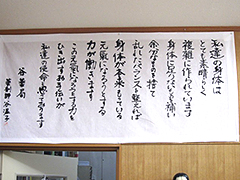 私達の身体は
とても素晴らしく
複雑に作られています
身体に良くないものを補い
余分なものを捨て
乱れたバランスを整えれば
身体が本来もっている
元氣になろうとする
力が働きます
この元氣になろうとする力を
ひき出すお手伝いが
私達の使命と考えております
谷薬局
薬剤師 谷